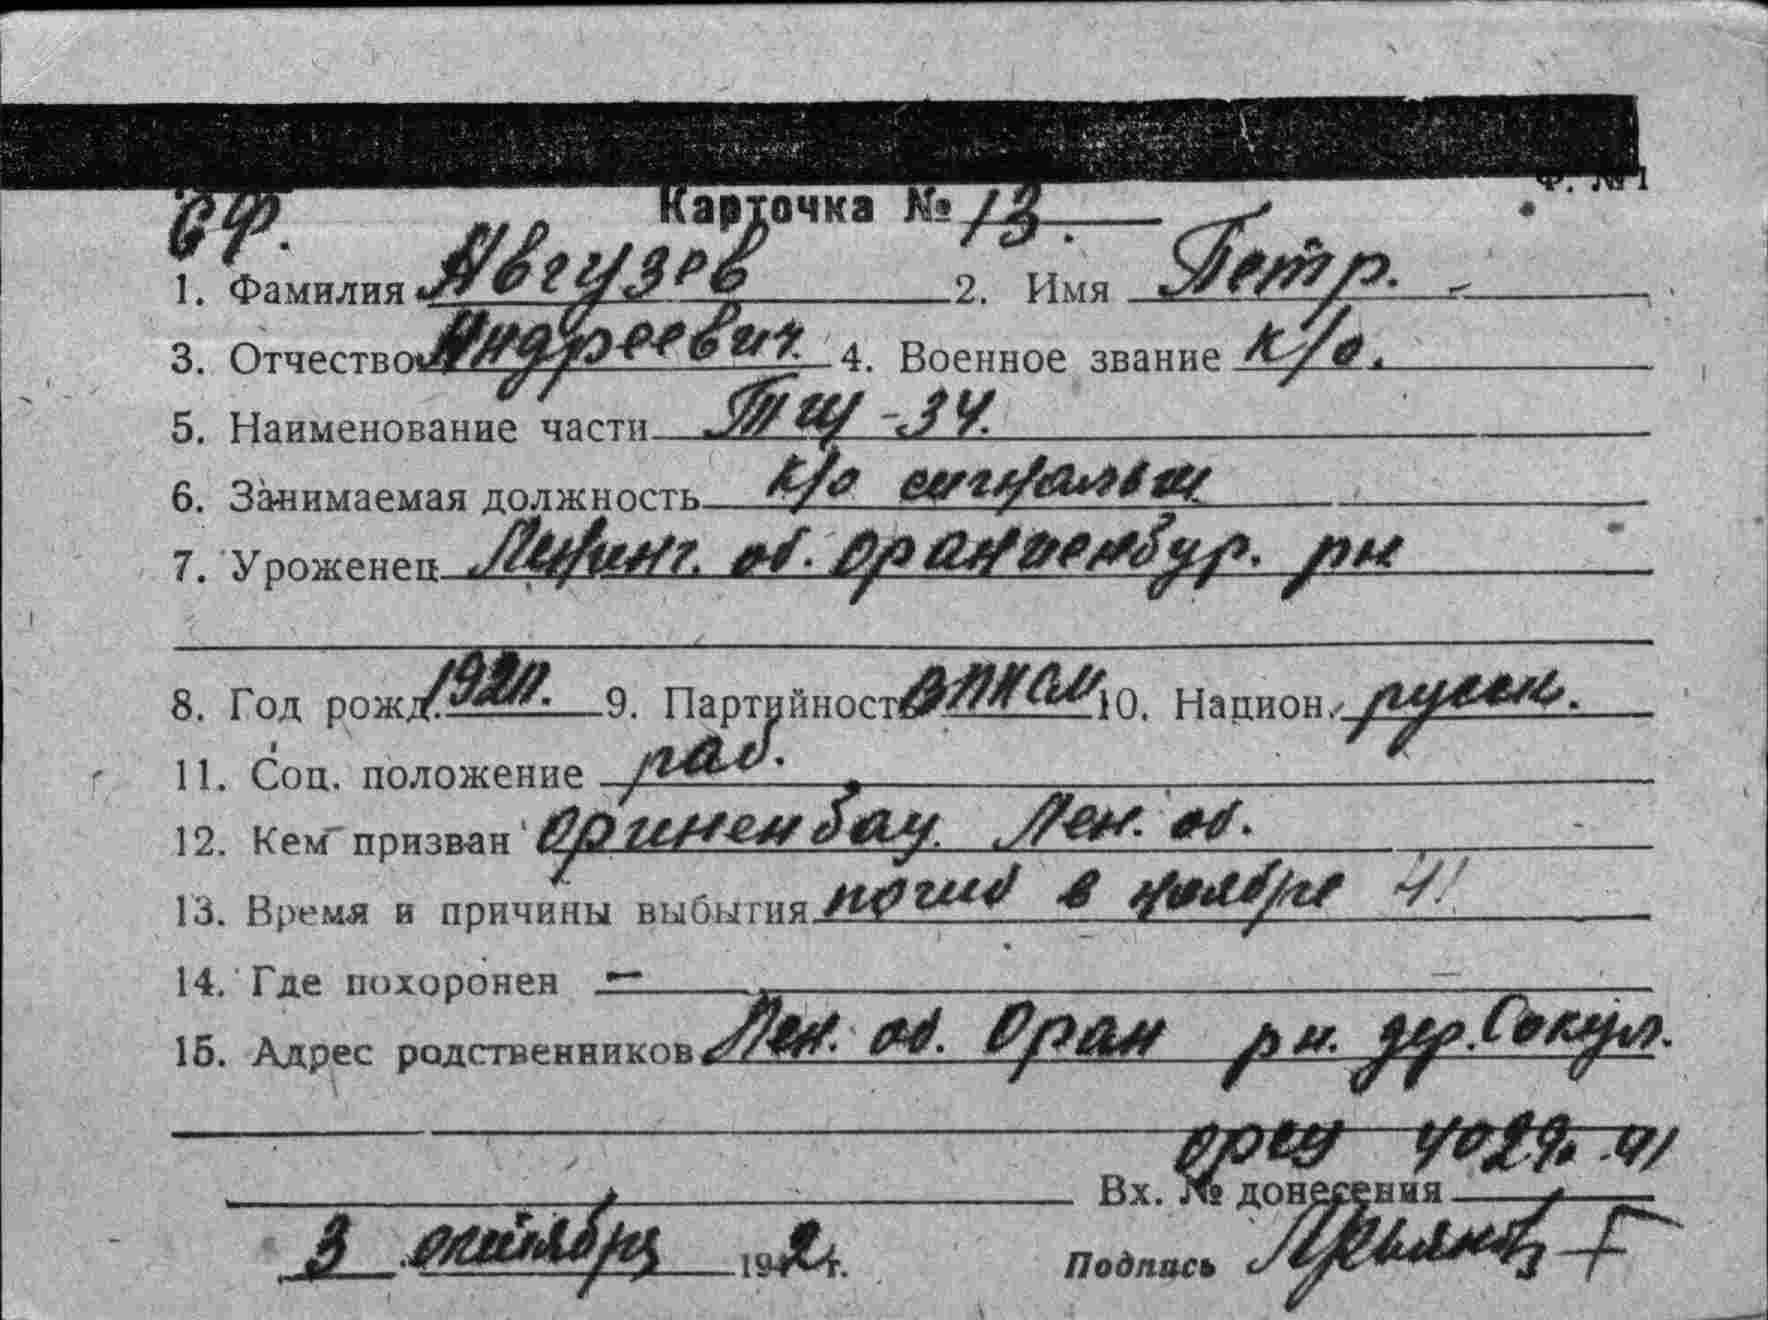 Ф. № 1
СФ.
Карточка № 13.
1. Фамилия Авгузев 2. Имя Петр.
3. Отчество Андреевич. 4. Военное звание к/о.
5. Наименование части Тщ-34.
6. Занимаемая должность к/о сигнальщ
7. Уроженец Ленинг. об. Ораниенбур. рн
8. Год рожд. 1920. 9. Партийность ВЛКСМ 10. Национ. русск.
11. Соц. положение раб.
12. Кем призван Ориненбау. Лен. об.
13. Время и причины выбытия погиб в ноябре 41
14. Где похоронен —
15. Адрес родственников Лен. об. Оран рн. дер. Сокул.
оргу 4029
Вх. № донесения
3 октября 1942 г. Подпись